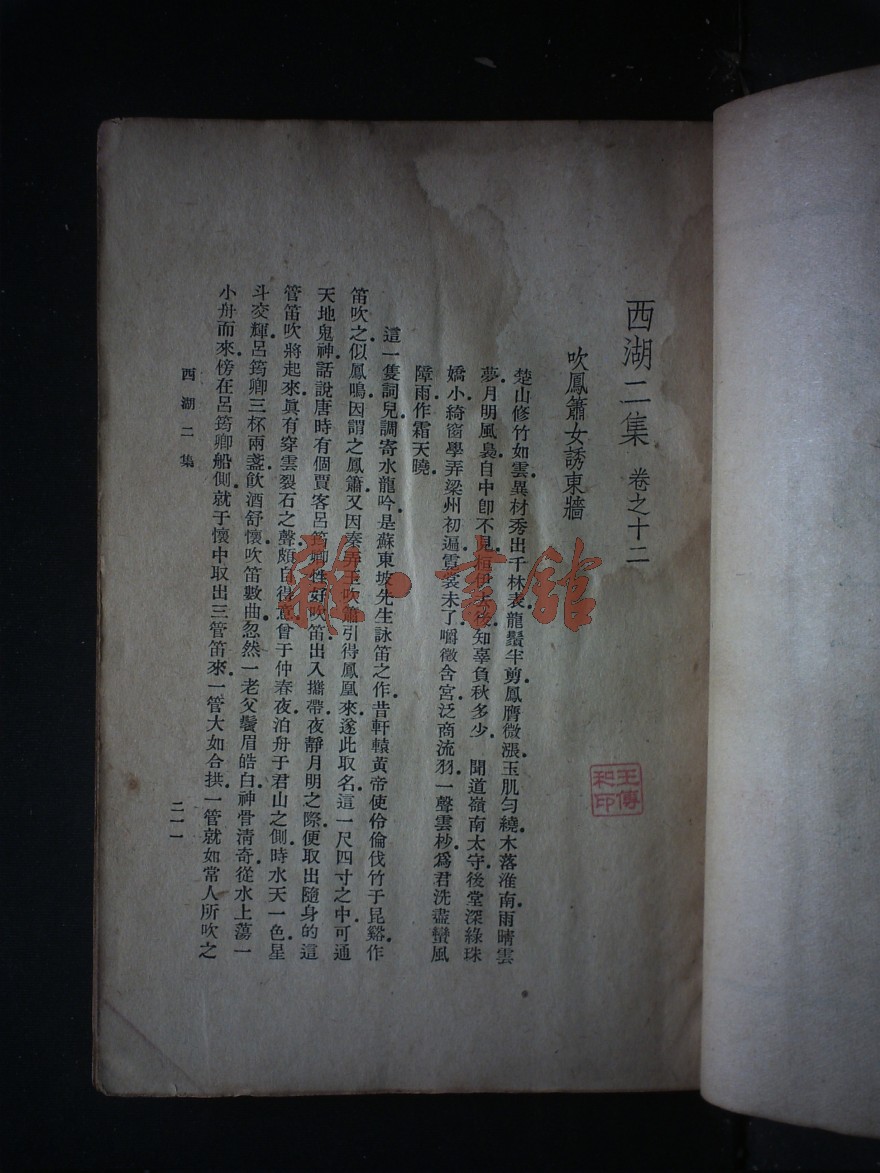 西湖二集 卷之十二
吹鳳簫女誘東牆
楚山修竹如雲異材秀出千林表龍鬚半剪鳳膺微漲玉肌勻繞木落淮南雨晴雲
夢月明風裊自中郎不見桓伊去後知辜負秋多少 聞道嶺南太守後堂深綠珠
嬌小綺窗學弄梁州初遍霓裳未了嚼徵含宮泛商流羽一聲雲杪爲君洗盡蠻風
障雨作霜天曉
這一隻詞兒調寄水龍吟是蘇東坡先生詠笛之作昔軒轅黃帝使伶倫伐竹于昆谿作
笛吹之似鳳鳴因謂之鳳簫又因秦弄玉吹簫引得鳳凰來遂此取名這一尺四寸之中可通
天地鬼神話說唐時有個賈客呂筠卿性好吹笛出入攜帶夜靜月明之際便取出隨身的這
管笛吹將起來眞有穿雲裂石之聲頗自得意曾于仲春夜泊舟于君山之側時水天一色星
斗交輝呂筠卿三杯兩盞飮酒舒懷吹笛數曲忽然一老父鬚眉皓白神骨清奇從水上蕩一
小舟而來傍在呂筠卿船側就于懷中取出三管笛來一管大如合拱一管就如常人所吹之
西湖二集
二一一
王傅
和印
雜·書館